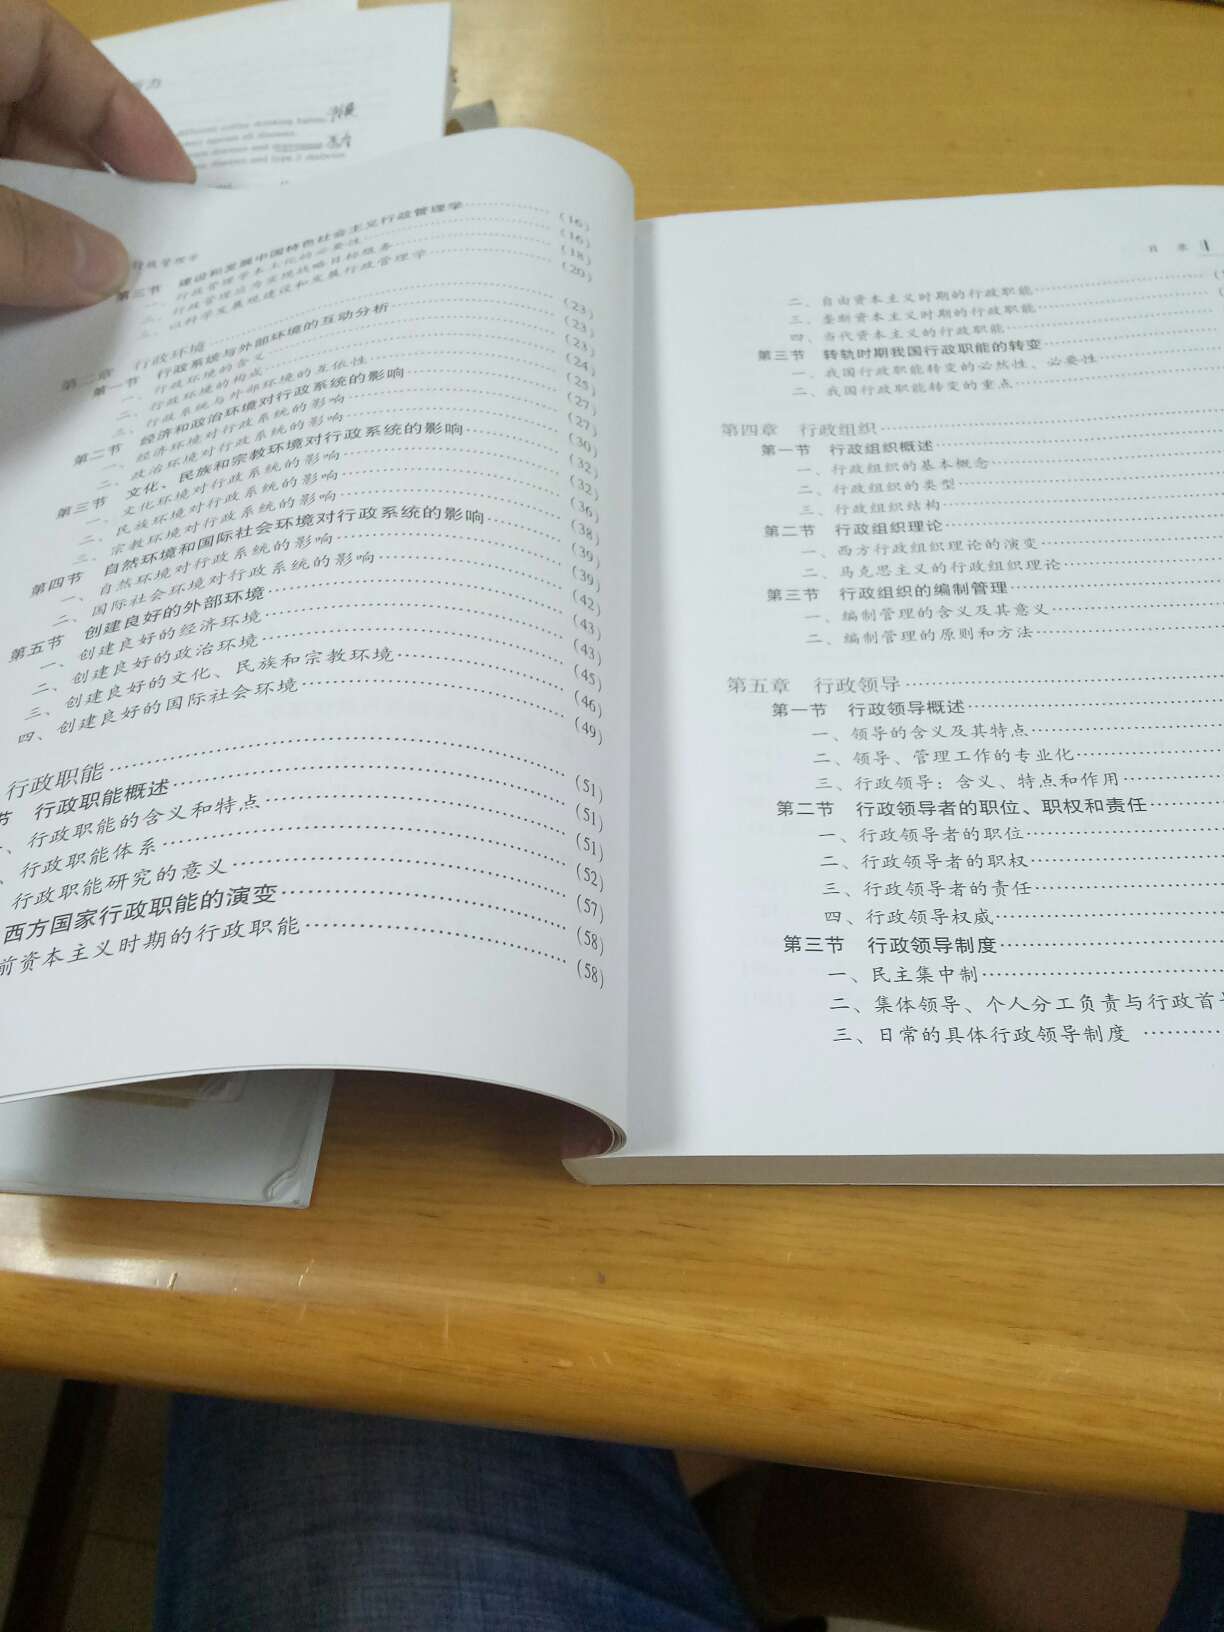 different coffee drinking habits
行政管理学
第三节 建设和发展中国特色社会主义行政管理学 (16)
一、行政管理学本土化的必要性 (16)
二、行政管理应为实现战略目标服务 (18)
三、以科学发展观建设和发展行政管理学 (20)
第二章 行政环境 (23)
第一节 行政系统与外部环境的互动分析 (23)
一、行政环境的含义 (23)
二、行政环境的构成 (24)
三、行政系统与外部环境的互依性 (25)
第二节 经济和政治环境对行政系统的影响 (27)
一、经济环境对行政系统的影响 (27)
二、政治环境对行政系统的影响 (30)
第三节 文化、民族和宗教环境对行政系统的影响 (32)
一、文化环境对行政系统的影响 (32)
二、民族环境对行政系统的影响 (36)
三、宗教环境对行政系统的影响 (38)
第四节 自然环境和国际社会环境对行政系统的影响 (39)
一、自然环境对行政系统的影响 (39)
二、国际社会环境对行政系统的影响 (42)
第五节 创建良好的外部环境 (43)
一、创建良好的经济环境 (43)
二、创建良好的政治环境 (45)
三、创建良好的文化、民族和宗教环境 (46)
四、创建良好的国际社会环境 (49)
行政职能 (51)
节 行政职能概述 (51)
、行政职能的含义和特点 (51)
、行政职能体系 (52)
行政职能研究的意义 (57)
西方国家行政职能的演变 (58)
前资本主义时期的行政职能 (58)
目 录
二、自由资本主义时期的行政职能
三、垄断资本主义时期的行政职能
四、当代资本主义的行政职能
第三节 转轨时期我国行政职能的转变
一、我国行政职能转变的必然性、必要性
二、我国行政职能转变的重点
第四章 行政组织
第一节 行政组织概述
一、行政组织的基本概念
二、行政组织的类型
三、行政组织结构
第二节 行政组织理论
一、西方行政组织理论的演变
二、马克思主义的行政组织理论
第三节 行政组织的编制管理
一、编制管理的含义及其意义
二、编制管理的原则和方法
第五章 行政领导
第一节 行政领导概述
一、领导的含义及其特点
二、领导、管理工作的专业化
三、行政领导：含义、特点和作用
第二节 行政领导者的职位、职权和责任
一、行政领导者的职位
二、行政领导者的职权
三、行政领导者的责任
四、行政领导权威
第三节 行政领导制度
一、民主集中制
二、集体领导、个人分工负责与行政首
三、日常的具体行政领导制度